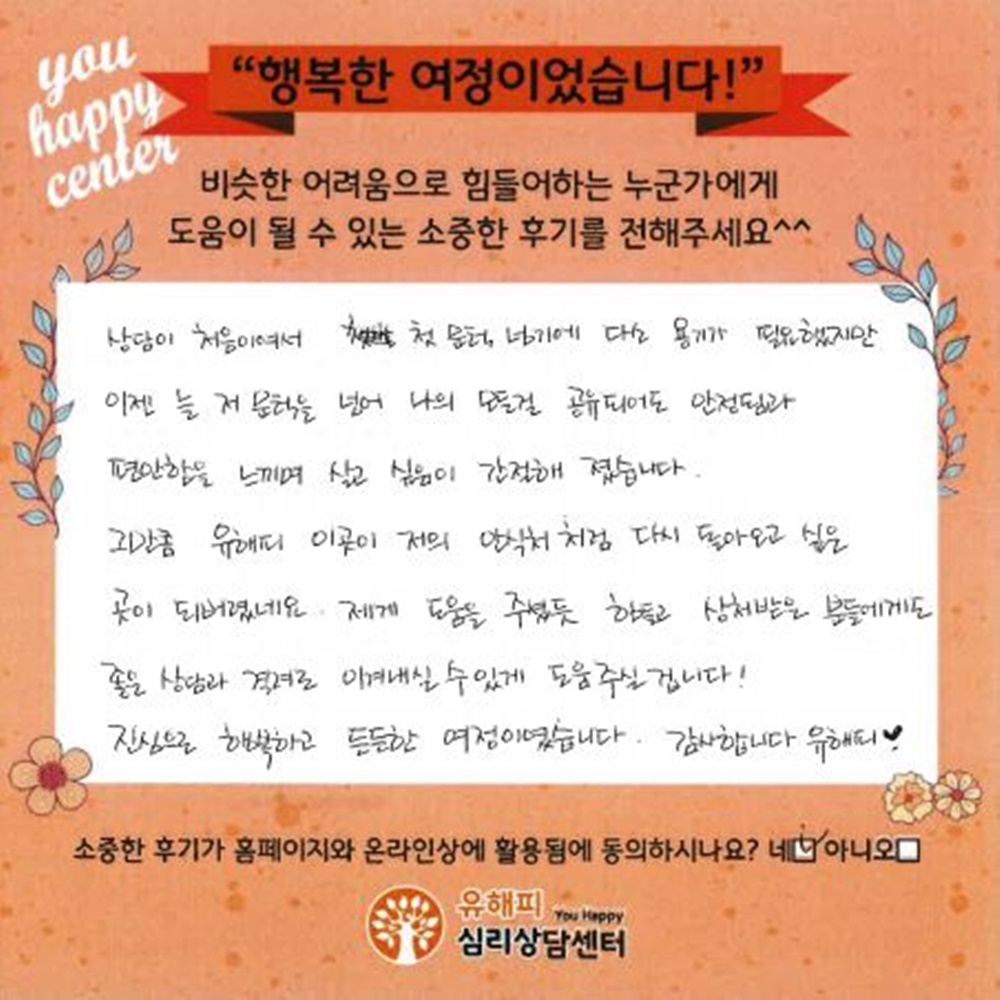 you
happy
center
“행복한 여정이었습니다!”
비슷한 어려움으로 힘들어하는 누군가에게
도움이 될 수 있는 소중한 후기를 전해주세요^^
상담이 처음이여서 첫 문턱 넘기에 다소 용기가 필요했지만
이젠 늘 저 문턱을 넘어 나의 모든걸 공유되어도 안정됨과
편안함을 느끼며 살고 싶음이 간절해 졌습니다.
그만큼 유해피 이곳이 저의 안식처 처럼 다시 돌아오고 싶은
곳이 되버렸네요. 제게 도움을 주셨듯 힘들고 상처받은 분들에게도
좋은 상담과 격려로 이겨내실 수 있게 도움주실겁니다!
진심으로 행복하고 든든한 여정이였습니다. 감사합니다 유해피♥
소중한 후기가 홈페이지와 온라인상에 활용됨에 동의하시나요? 네☑ 아니오□
유해피 You Happy
심리상담센터